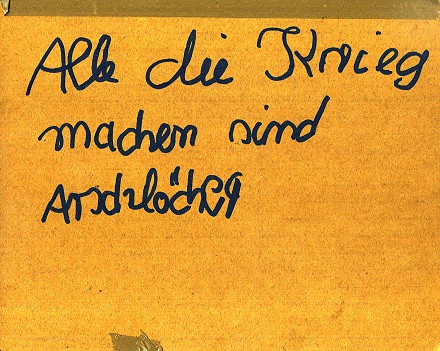 Alle die Krieg
machen sind
Arschlöcher